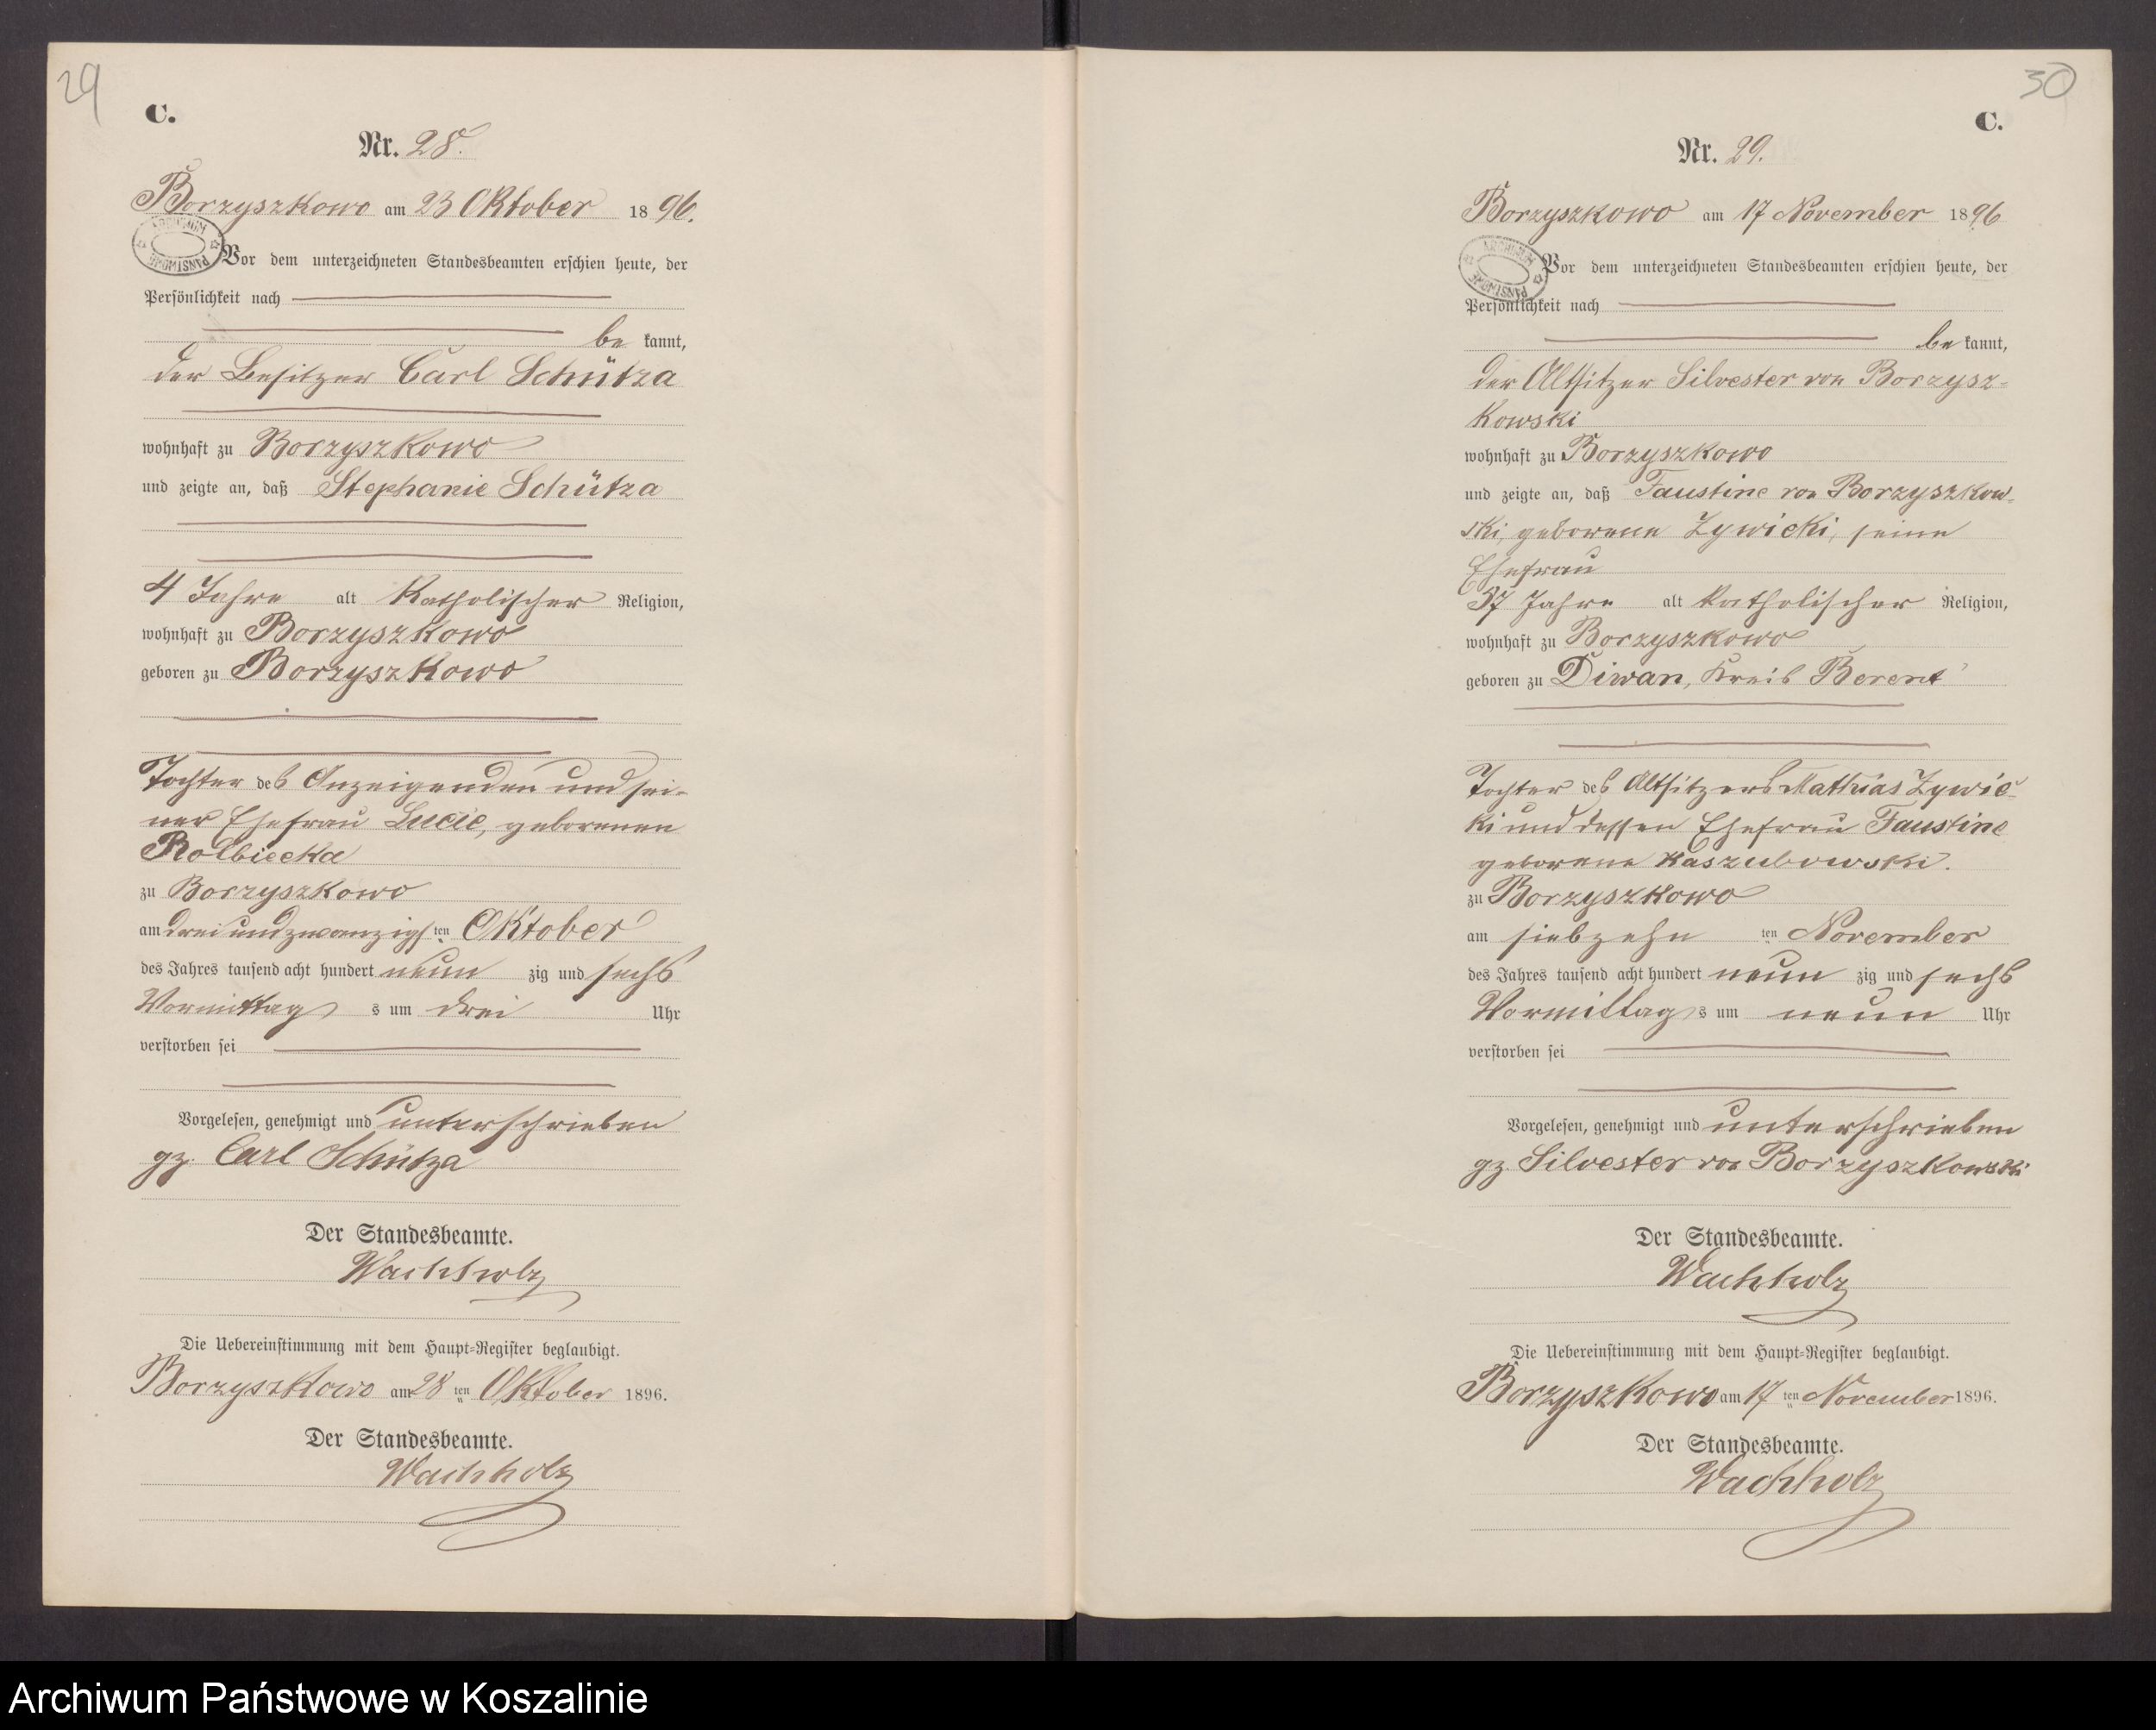 29
C.
Nr. 28.
Borzyszkowo am 23 Oktober 1896.
ARCHIWUM PAŃSTWOWE
Vor dem unterzeichneten Standesbeamten erschien heute, der
Persönlichkeit nach
be kannt,
der Besitzer Carl Schütza
wohnhaft zu Borzyszkowo
und zeigte an, daß Stephanie Schütza
4 Jahre alt Katholischer Religion,
wohnhaft zu Borzyszkowo
geboren zu Borzyszkowo
Tochter des Anzeigenden und sei-
ner Ehefrau Lucie, geborenen
Rolbiecka
zu Borzyszkowo
am dreiundzwanzigsten Oktober
des Jahres tausend acht hundert neun zig und sechs
Vormittags um drei Uhr
verstorben sei
Vorgelesen, genehmigt und unterschrieben
gz. Carl Schütza
Der Standesbeamte.
Wachholz
Die Uebereinstimmung mit dem Haupt-Register beglaubigt.
Borzyszkowo am 28 ten Oktober 1896.
Der Standesbeamte.
Wachholz
30
C.
Nr. 29.
Borzyszkowo am 17 November 1896
ARCHIWUM PAŃSTWOWE
Vor dem unterzeichneten Standesbeamten erschien heute, der
Persönlichkeit nach
be kannt,
der Altsitzer Silvester von Borzysz-
kowski
wohnhaft zu Borzyszkowo
und zeigte an, daß Faustine von Borzyszkow-
ski, geborene Zywicki, seine
Ehefrau
57 Jahre alt katholischer Religion,
wohnhaft zu Borzyszkowo
geboren zu Diwan, Kreis Berent
Tochter des Altsitzers Mathias Zywic-
ki und dessen Ehefrau Faustine
geborene Kaszubowski.
zu Borzyszkowo
am siebzehn ten November
des Jahres tausend acht hundert neun zig und sechs
Vormittags um neun Uhr
verstorben sei
Vorgelesen, genehmigt und unterschrieben
gz. Silvester von Borzyszkowski
Der Standesbeamte.
Wachholz
Die Uebereinstimmung mit dem Haupt-Register beglaubigt.
Borzyszkowo am 17 ten November 1896.
Der Standesbeamte.
Wachholz
Archiwum Państwowe w Koszalinie